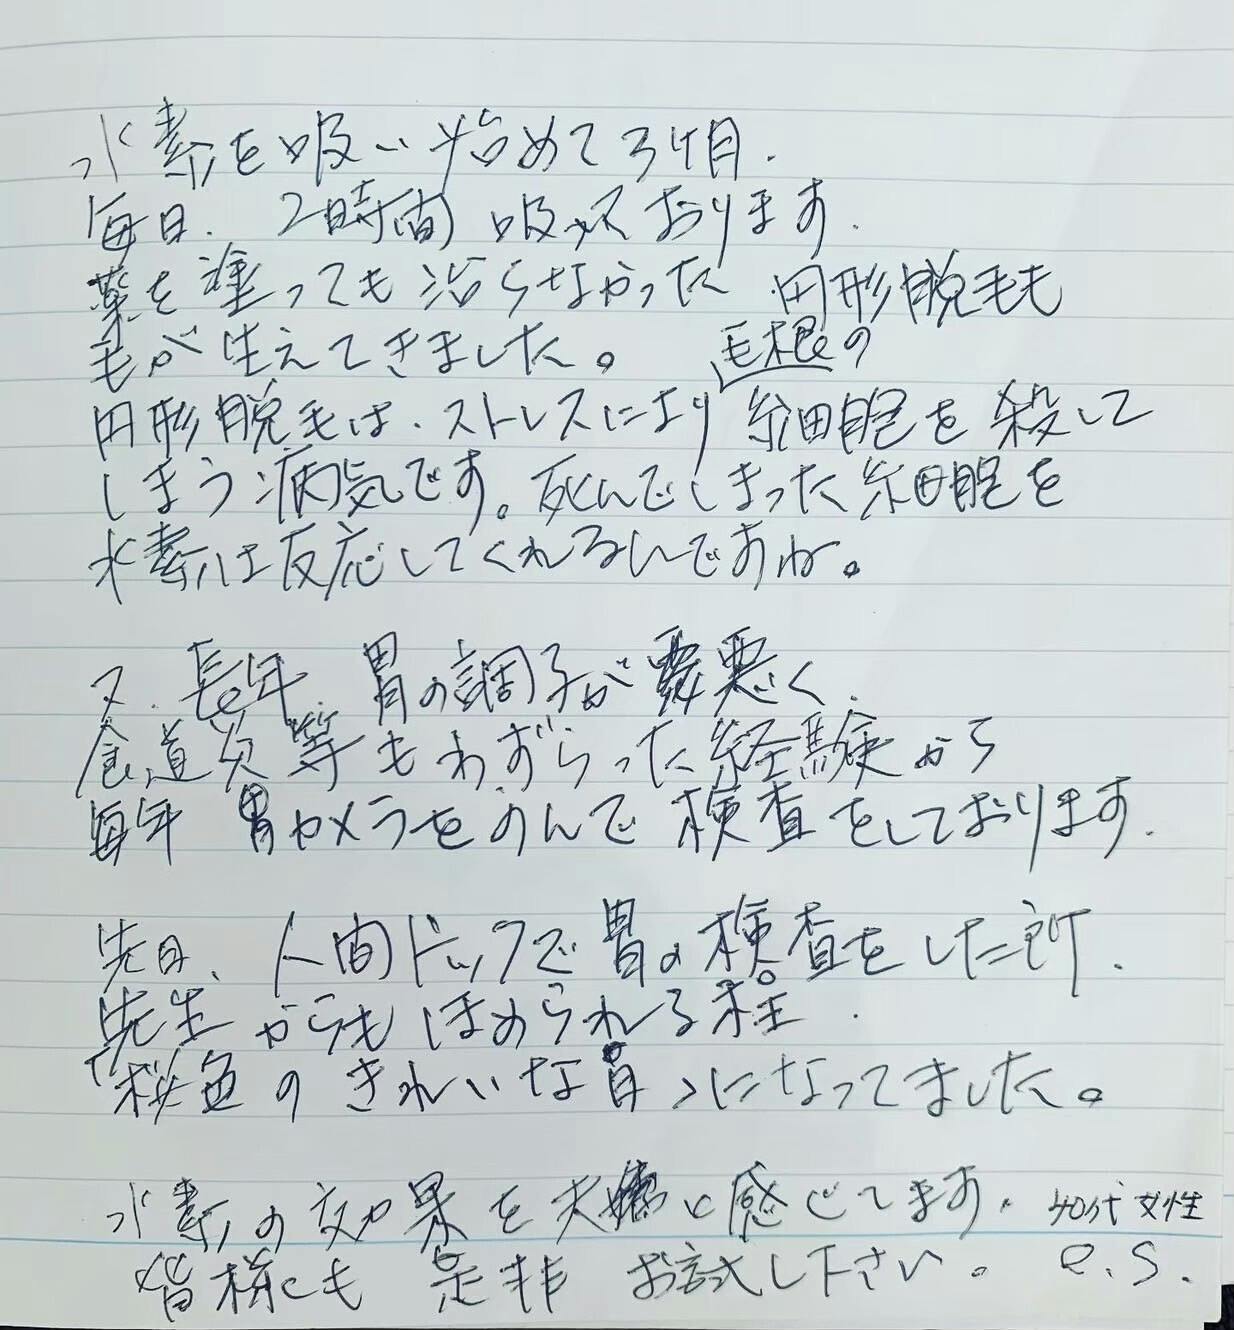 水素を吸い始めて3ヶ月.
毎日. 2時間 吸っております.
薬を塗っても治らなかった 円形脱毛も
毛が生えてきました。
毛根の
円形脱毛は.ストレスにより細胞を殺して
しまう病気です。死んでしまった細胞を
水素は反応してくれるんですね。
又. 長年 胃の調子が悪く.
食道炎等もわずらった経験から
毎年 胃カメラをのんで検査をしております.
先日、人間ドックで胃の検査をした所.
先生からもほめられる程.
「桜色のきれいな胃」になってました。
水素の効果を夫婦で感じてます. 40代女性
皆様にも 是非 お試し下さい。 e.S.